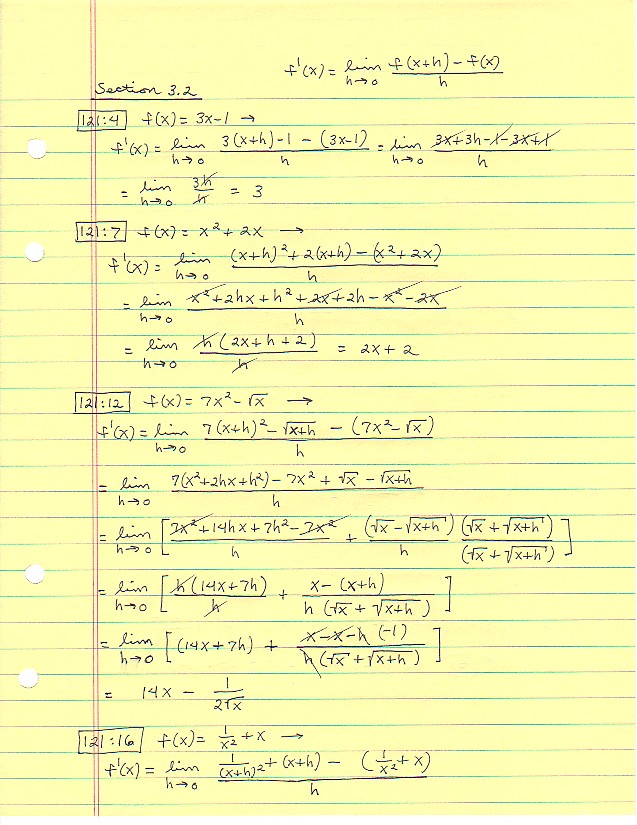 f'(x) = lim h→0 f(x+h) - f(x) / h
Section 3.2
121:4 f(x) = 3x-1 →
f'(x) = lim h→0 3(x+h)-1 - (3x-1) / h = lim h→0 3x+3h-1-3x+1 / h
= lim h→0 3h / h = 3
121:7 f(x) = x² + 2x →
f'(x) = lim h→0 (x+h)² + 2(x+h) - (x² + 2x) / h
= lim h→0 x² + 2hx + h² + 2x + 2h - x² - 2x / h
= lim h→0 h(2x + h + 2) / h = 2x + 2
121:12 f(x) = 7x² - √x →
f'(x) = lim h→0 7(x+h)² - √x+h - (7x² - √x) / h
= lim h→0 7(x²+2hx+h²) - 7x² + √x - √x+h / h
= lim h→0 [ 7x² + 14hx + 7h² - 7x² / h + (√x - √x+h) / h (√x + √x+h) / (√x + √x+h) ]
= lim h→0 [ h(14x+7h) / h + x - (x+h) / h(√x + √x+h) ]
= lim h→0 [ (14x+7h) + x-x-h (-1) / h(√x + √x+h) ]
= 14x - 1 / 2√x
121:16 f(x) = 1/x² + x →
f'(x) = lim h→0 1/(x+h)² + (x+h) - (1/x² + x) / h